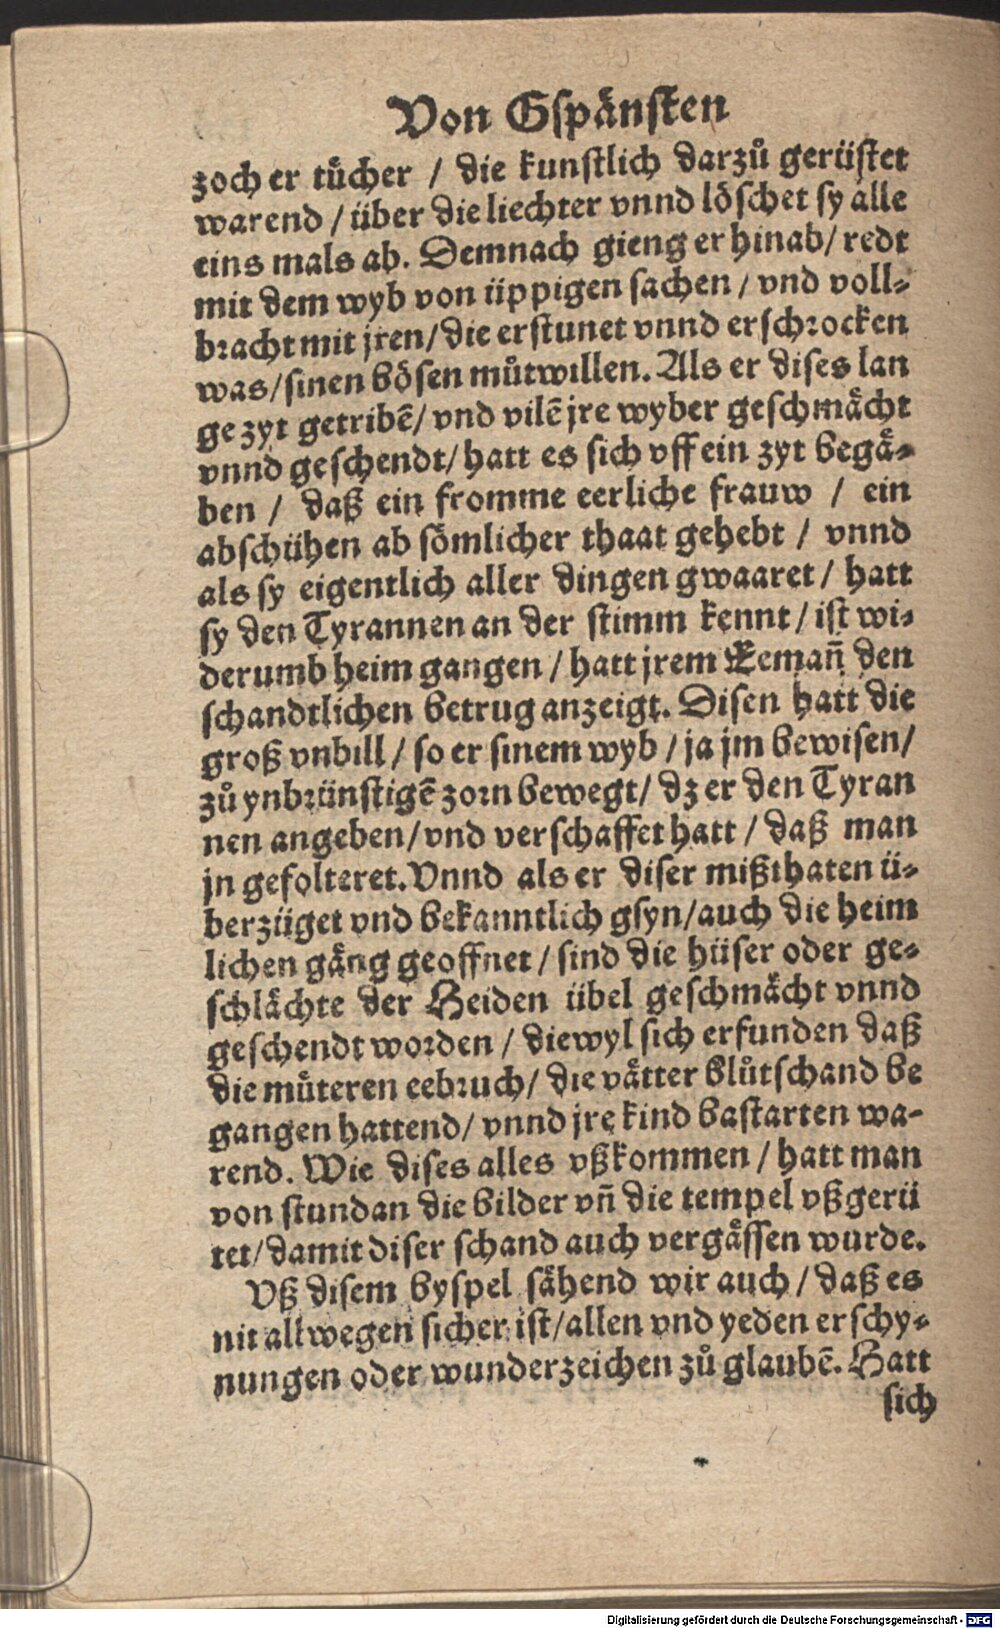 Von Gspaͤnsten
zoch er tuͤcher / die kunstlich darzuͦ geruͤstet
warend / uͤber die liechter vnnd loͤschet sy alle
eins mals ab. Demnach gieng er hinab / redt
mit dem wyb von uͤppigen sachen / vnd voll⸗
bracht mit jren / die erstunet vnnd erschrocken
was / sinen boͤsen muͦtwillen. Als er dises lan
ge zyt getribē / vnd vilē jre wyber geschmaͤcht
vnnd geschendt / hatt es sich vff ein zyt begaͤ⸗
ben / daß ein fromme eerliche frauw / ein
abschuͤhen ab soͤmlicher thaat gehebt / vnnd
als sy eigentlich aller dingen gwaaret / hatt
sy den Tyrannen an der stimm kennt / ist wi⸗
derumb heim gangen / hatt jrem Eemañ den
schandtlichen betrug anzeigt. Disen hatt die
groß vnbill / so er sinem wyb / ja jm bewisen /
zuͦ ynbruͤnstigē zorn bewegt / dz er den Tyran
nen angeben / vnd verschaffet hatt / daß man
jn gefolteret. Vnnd als er diser mißthaten uͤ⸗
berzuͤget vnd bekanntlich gsyn / auch die heim
lichen gaͤng geoffnet / sind die huͤser oder ge⸗
schlaͤchte der Heiden uͤbel geschmaͤcht vnnd
geschendt worden / diewyl sich erfunden daß
die muͤteren eebruch / die vaͤtter bluͦtschand be
gangen hattend / vnnd jre kind bastarten wa⸗
rend. Wie dises alles vßkommen / hatt man
von stundan die bilder vñ die tempel vßgeruͤ
tet / damit diser schand auch vergaͤssen wurde.
Vß disem byspel saͤhend wir auch / daß es
nit allwegen sicher ist / allen vnd yeden erschy⸗
nungen oder wunderzeichen zuͦ glaubē. Hatt
sich
Digitalisierung gefördert durch die Deutsche Forschungsgemeinschaft - DFG